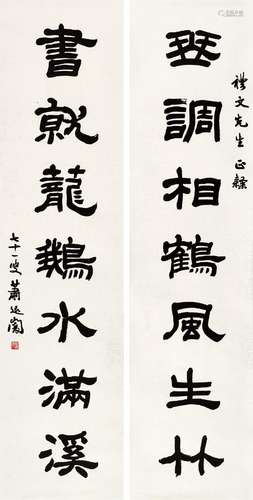 文先生正隸
琴調相鶴風生竹
書就龍鵝水滿溪
七十一叟蕭退闇